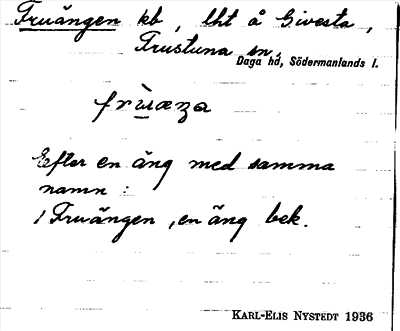 Fruängen kb, lht å Givesta,
Frustuna sn.
Daga hd, Södermanlands l.
Efter en äng med samma
namn :
1 Fruängen, en äng bek.
KARL-ELIS NYSTEDT 1936